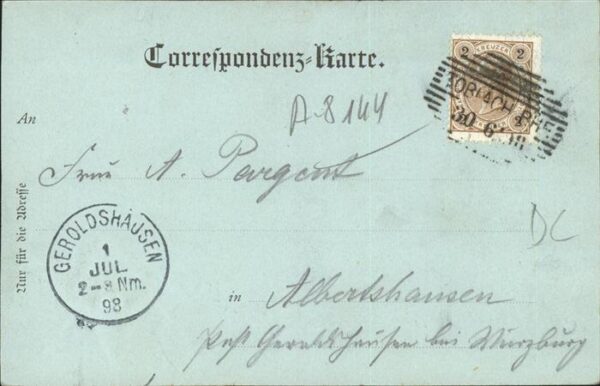 Correspondenz-Karte.
2 KREUZER 2
TOBLACH BHF
30 6 98
A-8144
An
Frau A. Pargent
Nur für die Adresse
GEROLDSHAUSEN
1
JUL.
2-3 Nm.
98
DC
in Albertshausen
Post Geroldshausen bei Würzburg